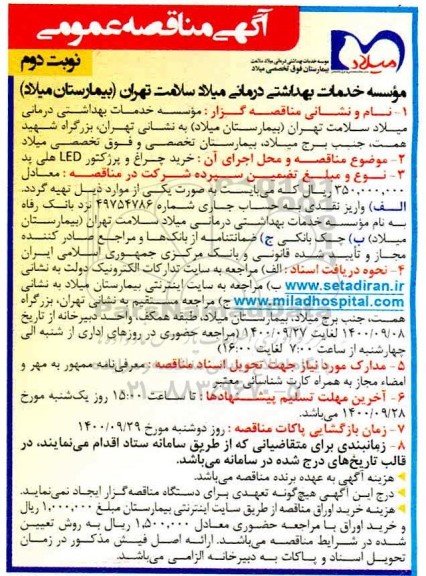 آگهی مناقصه عمومی
نوبت دوم
میلاد
موسسه خدمات بهداشتی درمانی میلاد سلامت
بیمارستان فوق تخصصی میلاد
مؤسسه خدمات بهداشتی درمانی میلاد سلامت تهران (بیمارستان میلاد)
۱- نــام و نشــانی مناقصــه گــزار : مؤسســه خدمــات بهداشــتی درمانی
میــلاد ســلامت تهــران (بیمارســتان میلاد) به نشــانی تهران، بزرگراه شــهید
همــت، جنــب بــرج میلاد، بیمارســتان تخصصــی و فــوق تخصصــی میلاد
۲- موضوع مناقصــه و محل اجرای آن : خرید چــراغ و پرژکتور LED هلی پد
۳- نــوع و مبلــغ تضمیــن ســپرده شــرکت در مناقصــه : معــادل
۳۵۰,۰۰۰,۰۰۰ ریــال کــه می‌بایســت به صورت یکــی از موارد ذیــل تهیه گردد.
الــف) واریــز نقــدی بــه حســاب جــاری شــماره ۴۹۷۵۴۷۸۶ نزد بانــک رفاه
به نــام مؤسســه خدمات بهداشــتی درمانــی میلاد ســلامت تهران (بیمارســتان
میــلاد) ب) چــک بانکــی ج) ضمانتنامــه از بانک‌هــا و مراجــع صــادر کننــده
مجــاز و تأییــد شــده قانونــی و بانــک مرکزی جمهــوری اســلامی ایران
۴- نحوه دریافت اســناد : الف) مراجعه به ســایت تدارکات الکترونیک دولت به نشــانی
www.setadiran.ir ب) مراجعه به ســایت اینترنتی بیمارستان میلاد به نشانی
www.miladhospital.com ج) مراجعه مســتقیم به نشانی تهران، بزرگراه
همــت، جنب برج میلاد، بیمارســتان میلاد، طبقه همکف، واحــد دبیرخانه از تاریخ
۱۴۰۰/۰۹/۰۸ لغایت ۱۴۰۰/۰۹/۲۷ (مراجعه حضوری در روزهای اداری از شــنبه الی
چهارشــنبه از ســاعت ۷:۰۰ لغایت ۱۶:۰۰)
۵- مدارک مورد نیاز جهت تحویل اسناد مناقصه : معرفی‌نامه ممهور به مهر و
امضاء مجاز به همراه کارت شناسائی معتبر
۶- آخریــن مهلت تســلیم پیشــنهادها : تا ســاعت ۱۵:۰۰ روز یک‌شــنبه مورخ
۱۴۰۰/۰۹/۲۸ می‌باشد.
۷- زمان بازگشایی پاکات مناقصه : روز دوشنبه مورخ ۱۴۰۰/۰۹/۲۹
۸- زمانبندی برای متقاضیانی که از طریق سامانه ستاد اقدام می‌نمایند، در
قالب تاریخ‌های درج شده در سامانه می‌باشد.
هزینه آگهی به عهده برنده مناقصه می‌باشد.
درج این آگهی هیچ‌گونه تعهــدی برای دســتگاه مناقصه‌گزار ایجــاد نمی‌نماید.
هزینه خرید اوراق مناقصه از طریق سایت اینترنتی بیمارستان مبلغ ۱,۰۰۰,۰۰۰ ریال
و خریــد اوراق بــا مراجعــه حضوری معــادل ۱,۵۰۰,۰۰۰ ریال به روش تعیین
شــده در شــرایط مناقصــه می‌باشــد. ارائه اصل فیــش مذکــور در زمان
تحویل اسناد و پاکات به دبیرخانه الزامی می‌باشد.